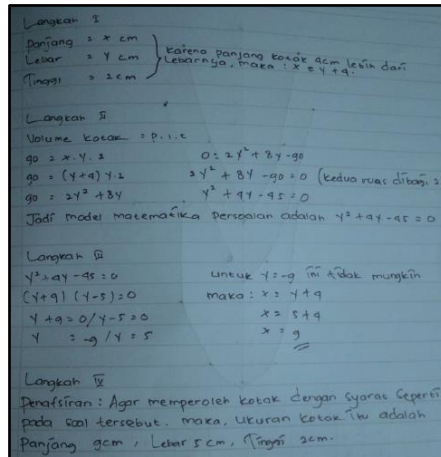 Langkah I
Panjang = x cm
Lebar = y cm
Tinggi = 2 cm
Karena panjang kotak 4cm lebih dari
Lebarnya, maka : x = y + 4.
Langkah II
Volume kotak = p.l.t
90 = x . y . 2
90 = (y+4) y.2
90 = 2y² + 8y
0 = 2y² + 8y - 90
2y² + 8y - 90 = 0 (kedua ruas dibagi 2
y² + 4y - 45 = 0
Jadi model matematika persoalan adalah y² + 4y - 45 = 0
Langkah III
y² + 4y - 45 = 0
(y+9) (y-5) = 0
y + 9 = 0 / y - 5 = 0
y = -9 / y = 5
untuk y = -9 ini tidak mungkin
maka : x = y + 4
x = 5 + 4
x = 9
Langkah IV
Penafsiran : Agar memperoleh kotak dengan syarat seperti
pada soal tersebut. maka, ukuran kotak itu adalah
Panjang 9cm, Lebar 5 cm, Tinggi 2cm.